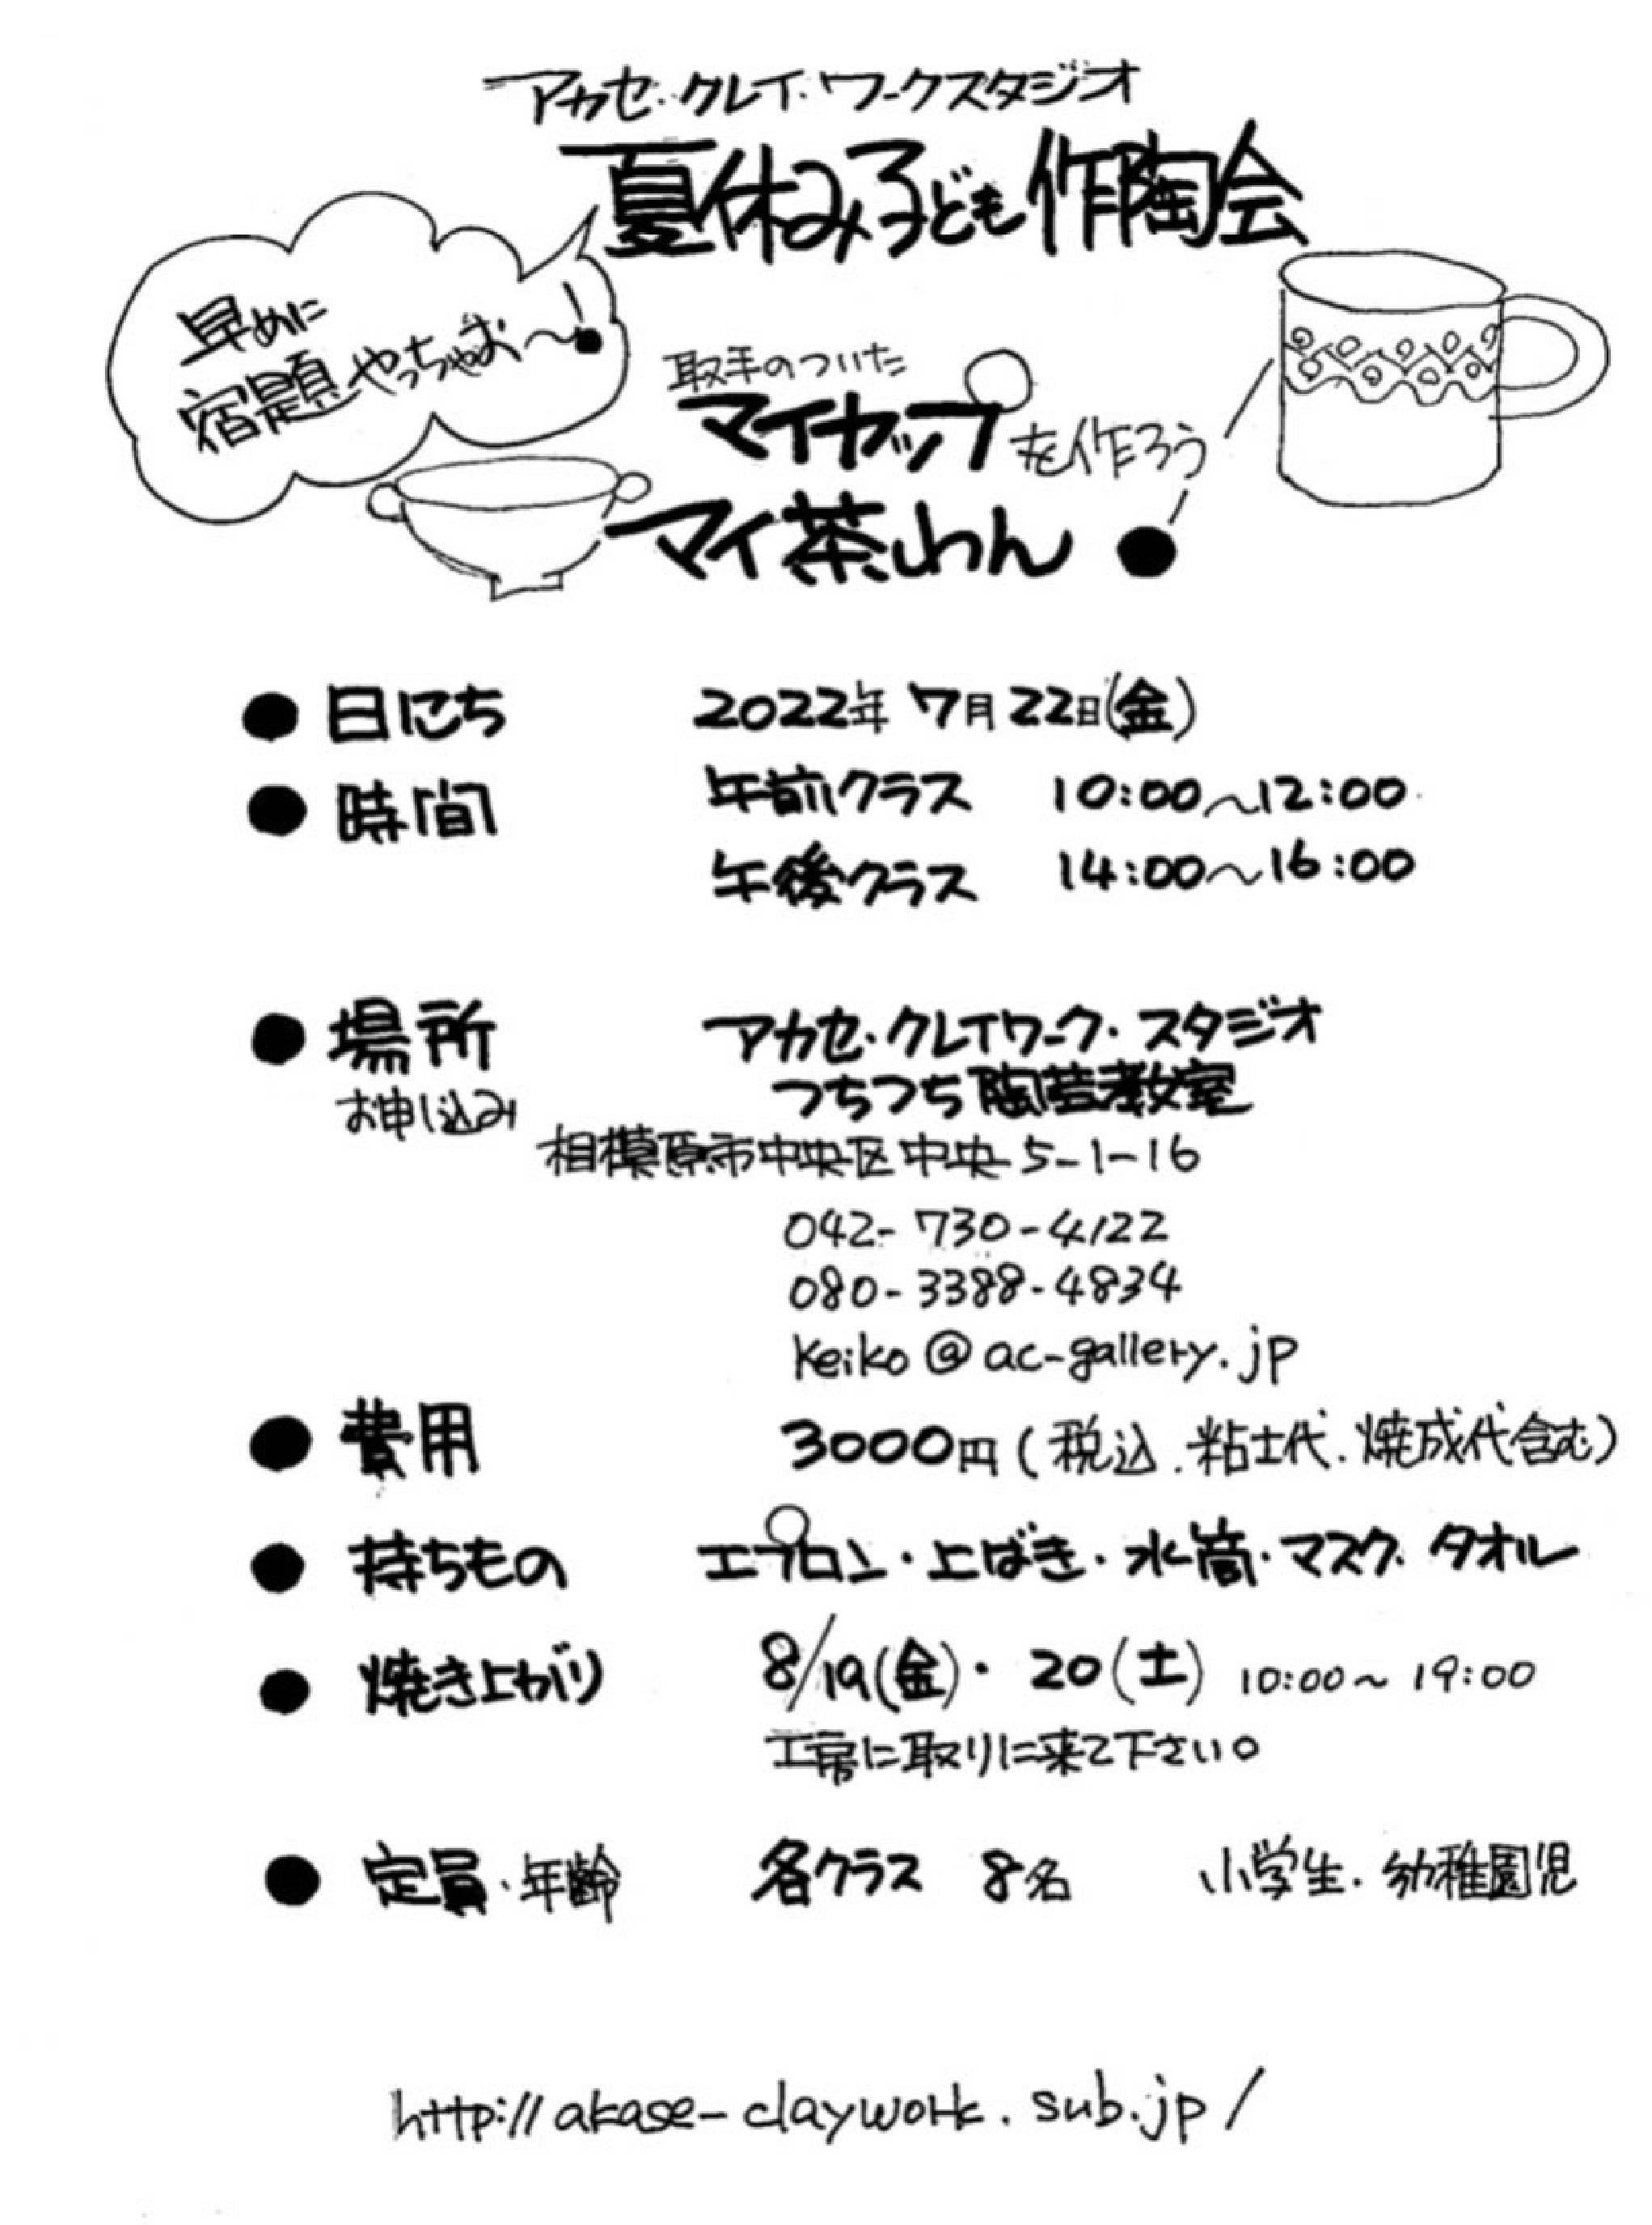 アカセ・クレイ・ワークスタジオ
夏休み子ども作陶会
早めに
宿題やっちゃお〜!
取手のついた
マイカップを作ろう!
マイ茶わん
● 日にち 2022年 7月22日(金)
● 時間 午前クラス 10:00〜12:00
午後クラス 14:00〜16:00
● 場所 アカセ・クレイワーク・スタジオ
お申し込み つちつち陶芸教室
相模原市中央区中央5-1-16
042-730-4122
080-3388-4834
keiko@ac-gallery.jp
● 費用 3000円(税込.粘土代.焼成代含む)
● 持ちもの エプロン・上ばき・水筒・マスク・タオル
● 焼き上がり 8/19(金)・20(土) 10:00〜19:00
工房に取りに来て下さい。
● 定員・年齢 各クラス 8名 小学生・幼稚園児
http://akase-claywork.sub.jp/